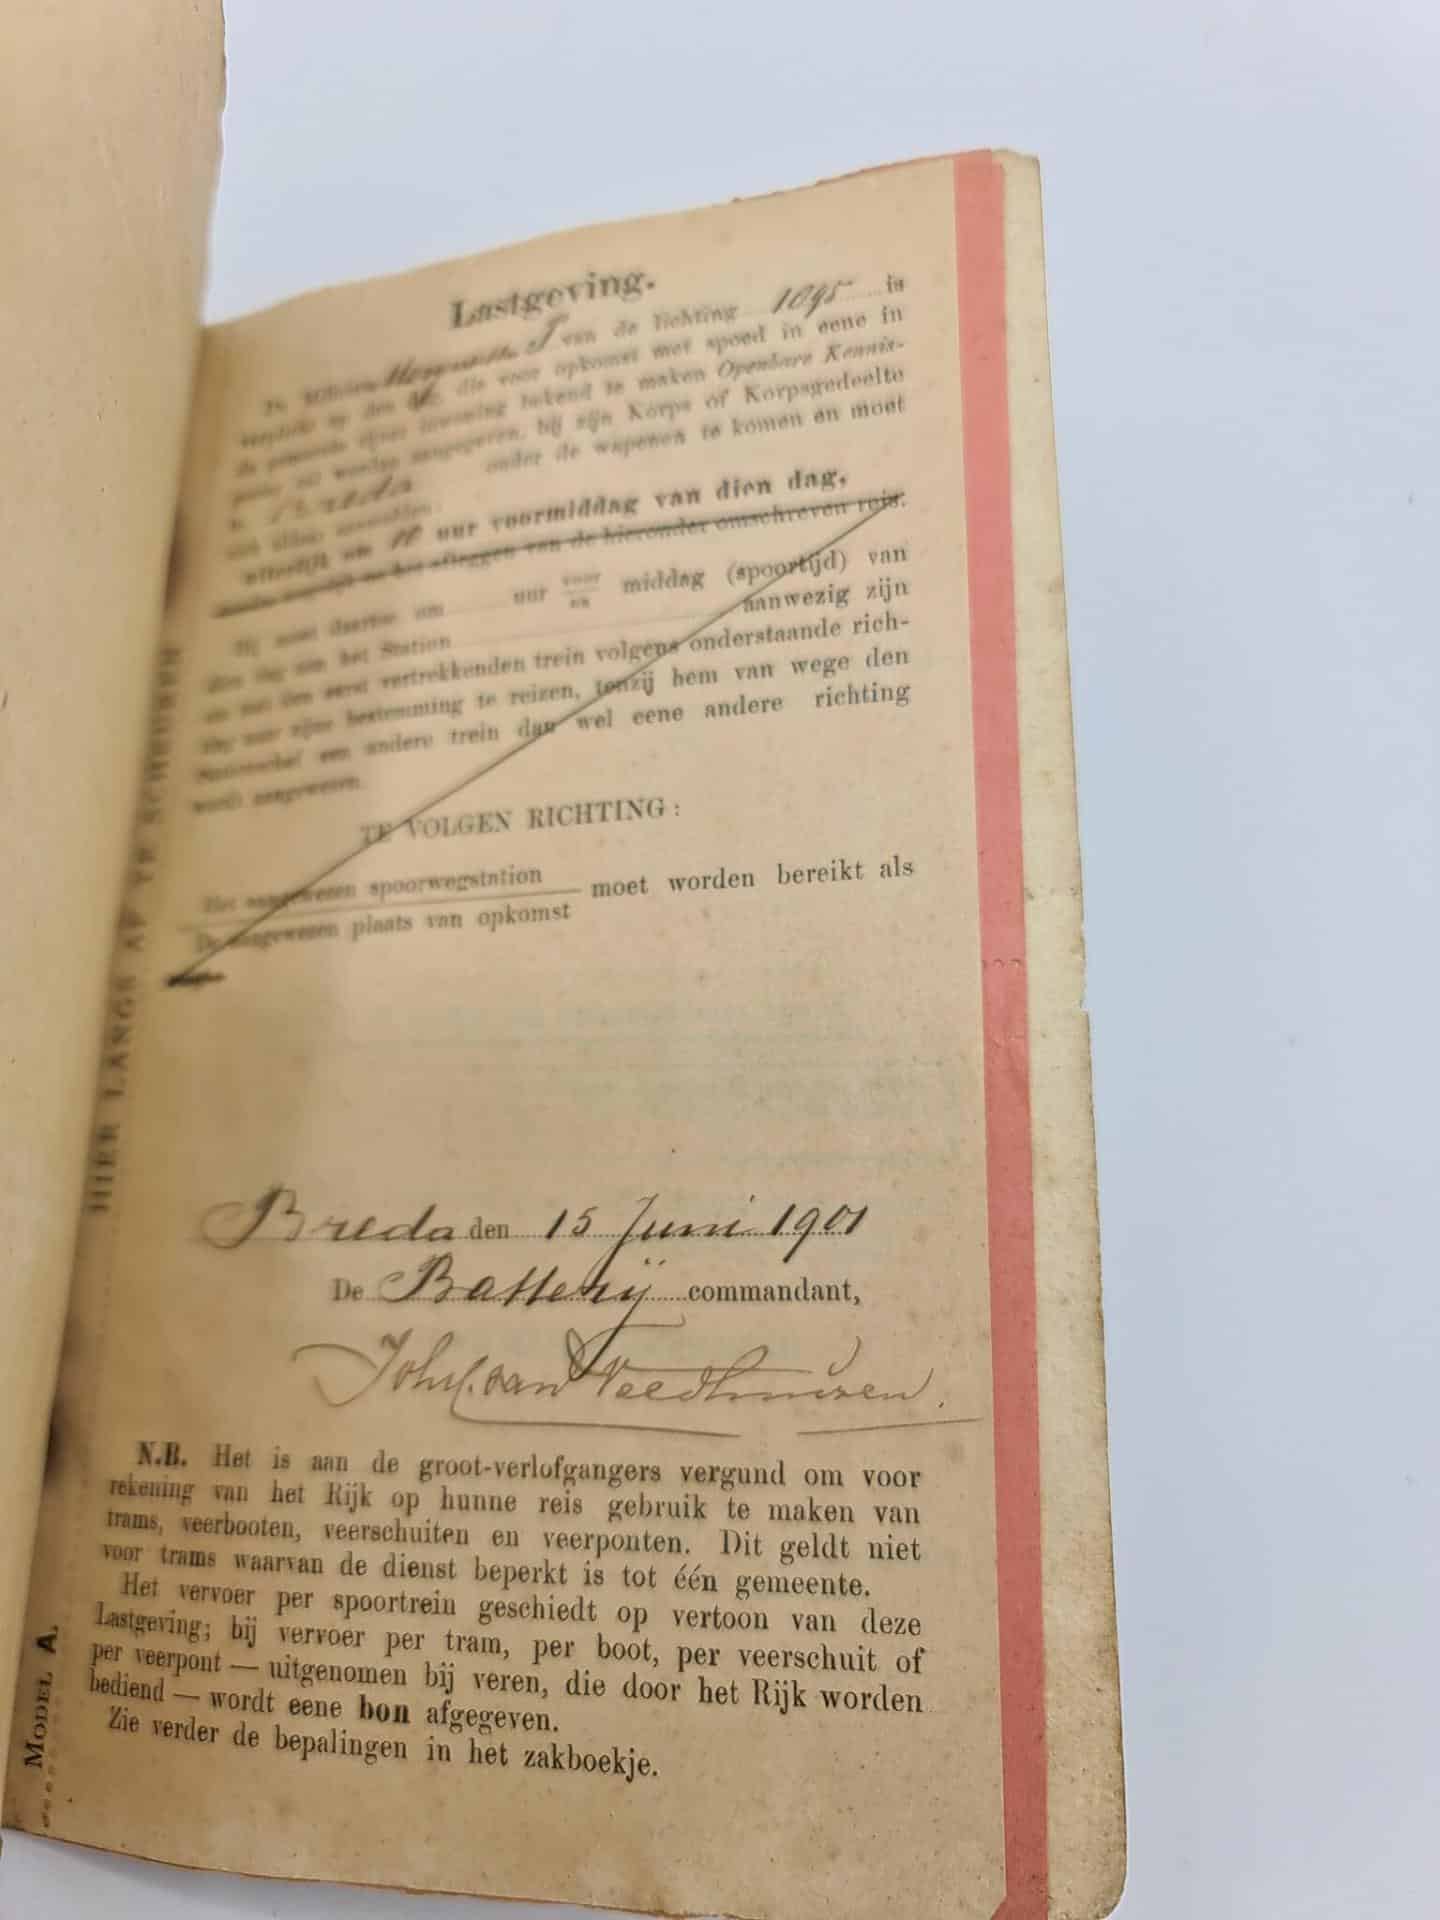 Lastgeving.
van de lichting 1895 is
verplicht op den dag, die voor opkomst met spoed in eene in
de gemeente zijner inwoning bekend te maken Openbare Kennis-
geving zal worden aangegeven, bij zijn Korps of Korpsgedeelte
te Breda onder de wapenen te komen en moet
zich aldaar aanmelden:
uiterlijk om 11 uur voormiddag van dien dag,
het afleggen van de hieronder omschreven reis.
Hij moet daartoe om uur voor/na middag (spoortijd) van
dien dag aan het Station aanwezig zijn
en met den eerst vertrekkenden trein volgens onderstaande rich-
ting naar zijne bestemming te reizen, tenzij hem van wege den
Stationschef een andere trein dan wel eene andere richting
wordt aangewezen.
TE VOLGEN RICHTING:
Het aangewezen spoorwegstation
De aangewezen plaats van opkomst
moet worden bereikt als
Breda den 15 Juni 1901
De Batterij commandant,
van Veldhuizen.
N.B. Het is aan de groot-verlofgangers vergund om voor
rekening van het Rijk op hunne reis gebruik te maken van
trams, veerbooten, veerschuiten en veerponten. Dit geldt niet
voor trams waarvan de dienst beperkt is tot één gemeente.
Het vervoer per spoortrein geschiedt op vertoon van deze
Lastgeving; bij vervoer per tram, per boot, per veerschuit of
per veerpont — uitgenomen bij veren, die door het Rijk worden
bediend — wordt eene bon afgegeven.
Zie verder de bepalingen in het zakboekje.
HIER LANGS AF TE SCHEUREN
MODEL A.